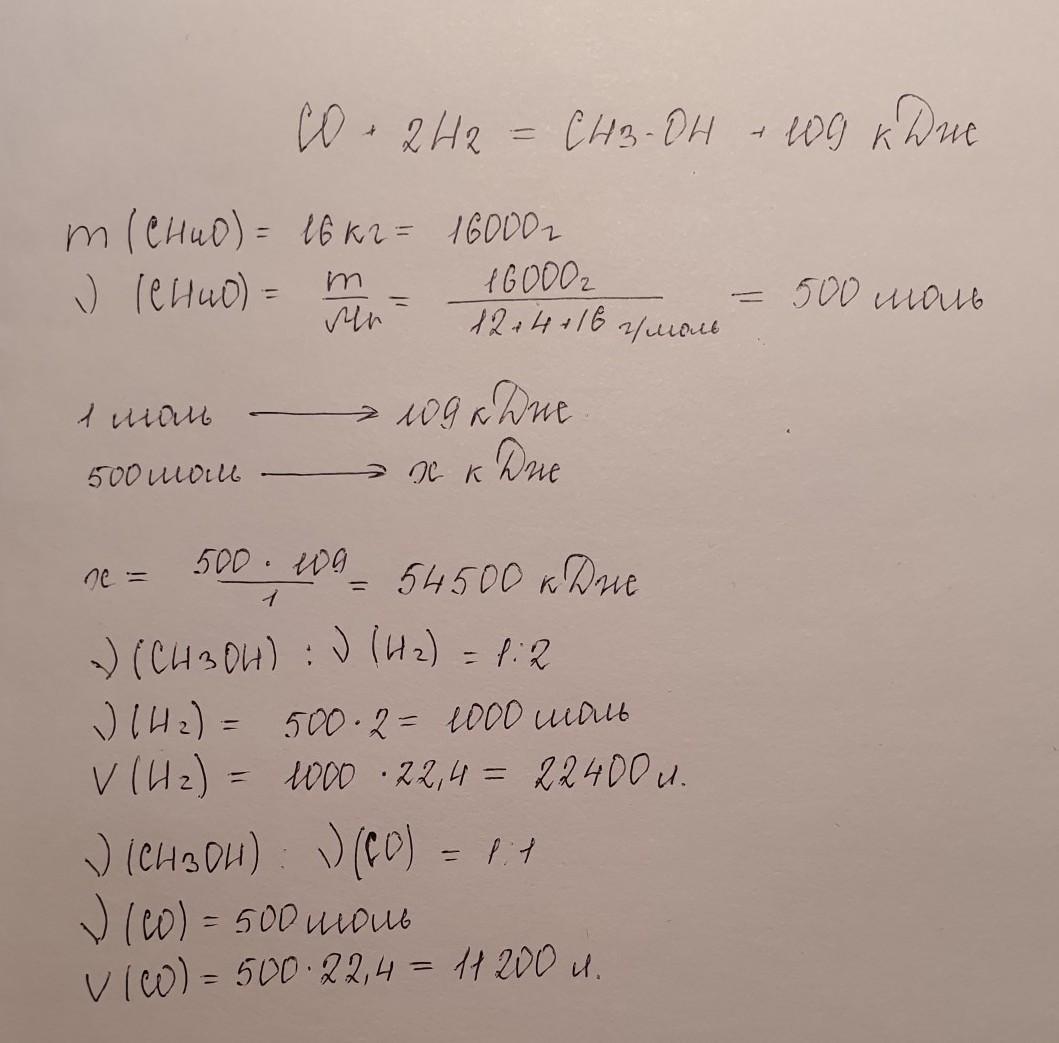 CO + 2H2 = CH3-OH + 109 кДж
m (CH4O) = 16 кг = 16000г
ν (CH4O) = m/Mr = 16000г/12+4+16 г/моль = 500 моль
1 моль → 109 кДж
500 моль → x кДж
x = 500 · 109/1 = 54500 кДж
ν (CH3OH) : ν (H2) = 1:2
ν (H2) = 500 · 2 = 1000 моль
V (H2) = 1000 · 22,4 = 22400 л.
ν (CH3OH) : ν (CO) = 1:1
ν (CO) = 500 моль
V (CO) = 500 · 22,4 = 11200 л.